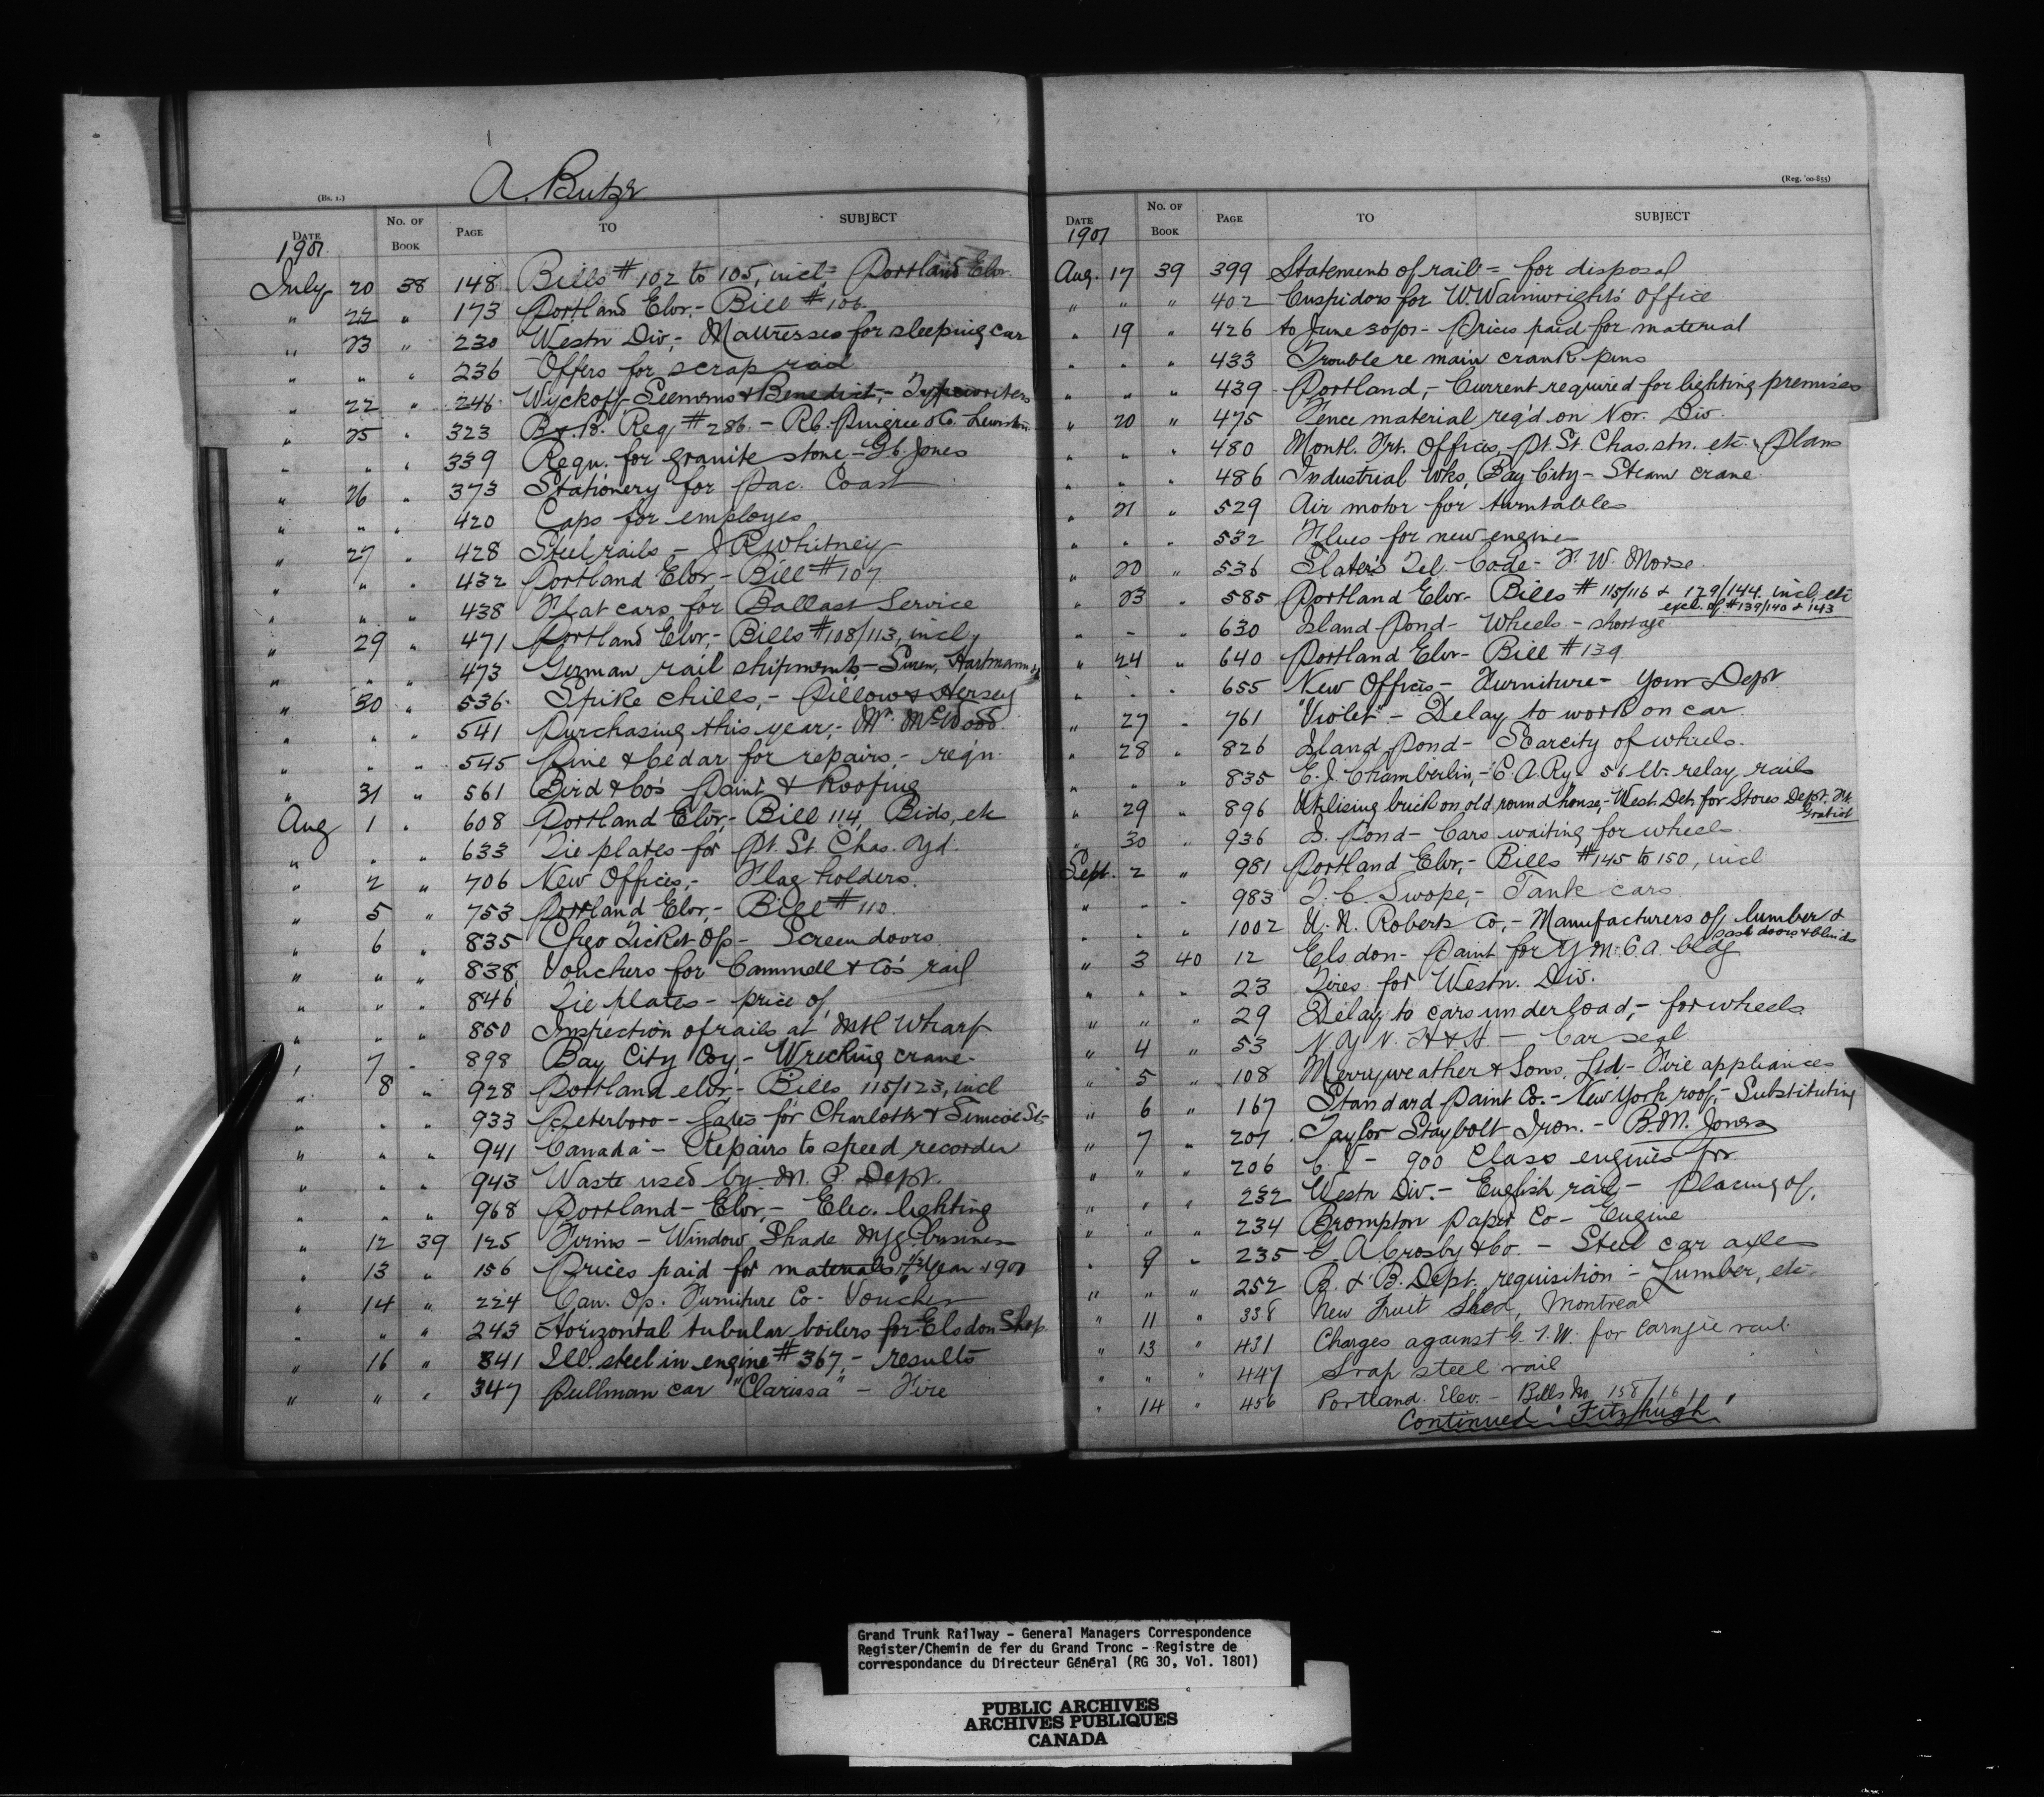 A. Butze
(Bs. 1.)
DATE No. OF BOOK PAGE TO SUBJECT
1901
July 20 38 148 Bills # 102 to 105, incl = Portland Elvr.
" 22 " 173 Portland Elvr.- Bill # 106
" 23 " 230 Westn Div,- Mattresses for sleeping car
" " " 236 Offers for scrap rail
" 22 " 246 Wyckoff Seemons & Benedict,- Typewriters
" 25 " 323 B & B. Req # 286. - Pingree & Co. Lewiston
" " " 339 Requ. for granite stone - Jones
" 26 " 373 Stationery for Pac. Coast
" " " 420 Caps for employes
" 27 " 428 Steel rails - J R Whitney
" " " 432 Portland Elvr,- Bill # 107
" " " 438 Flat cars for Ballast Service
" 29 " 471 Portland Elvr,- Bills # 108/113, incl,
" " " 473 German rail shipments -
" 30 " 536 Spike chills,- Pillow & Hersey
" " " 541 Purchasing this year,- Mr. McWood
" " " 545 Pine & Cedar for repairs,- reqn.
" 31 " 561 Bird & Co's Paint & Roofing
Aug 1 " 608 Portland Elvr,- Bill 114, Bids, etc
" " " 633 Tie plates for Pt. St. Chas. Yd.
" 2 " 706 New Offices,- Flag holders.
" 5 " 753 Portland Elvr,- Bill # 110.
" 6 " 835 Chgo Ticket Of- Screen doors
" " " 838 Vouchers for Cammell & Co's rail
" " " 846 Tie plates - price of,
" " " 850 Inspection of rails at Mtl Wharf
" 7 " 898 Bay City Coy,- Wrecking crane-
" 8 " 928 Portland elvr,- Bills 115/123, incl
" " " 933 Peterboro - Gates for Charlotte & Simcoe St-
" " " 941 "Canada" - Repairs to speed recorder
" " " 943 Waste used by M. P. Dept.
" " " 968 Portland - Elvr,- Elec. lighting
" 12 39 125 Firms - Window Shade Mfg. business
" 13 " 156 Prices paid for materials, 1/2 year 1900
" 14 " 224 Can. Op. Furniture Co - Voucher
" " " 243 Horizontal tubular boilers for Elsdon Shop.
" 16 " 341 Ill. steel in engine # 367,- results
" " " 347 Pullman car "Clarissa" - Fire
(Reg. '00-855)
DATE No. OF BOOK PAGE TO SUBJECT
1901
Aug. 17 39 399 Statement of rail = for disposal
" " " 402 Cuspidors for W. Wainwright's Office
" 19 " 426 to June 30/01 - Prices paid for material
" " " 433 Trouble re main crank pins
" " " 439 Portland,- Current required for lighting premises
" 20 " 475 Fence material req'd on Nor. Div.
" " " 480 Montl. Frt. Offices, Pt. St. Chas. stn. etc - Plans
" " " 486 Industrial Wks, Bay City - Steam crane
" 21 " 529 Air motor for turntables
" " " 532 Flues for new engines
" 20 " 536 Slater's Tel. Code - F. W. Morse
" 23 " 585 Portland Elvr- Bills # 115/116 & 129/144. incl, etc
excl. of # 139/140 & 143
" " " 630 Island Pond - Wheels - shortage
" 24 " 640 Portland Elvr - Bill # 139
" " " 655 New Offices - Furniture - Your Dept
" 27 " 761 "Violet" - Delay to work on car
" 28 " 826 Island Pond - Scarcity of wheels.
" " " 835 E. J. Chamberlin,- C. A. Ry - 56 lb. relay, rails
" 29 " 896 Utilizing brick on old round house,- West. Det. for Stores Dept. Ft.
Gratiot
" 30 " 936 I. Pond - Cars waiting for wheels.
Sept. 2 " 981 Portland Elvr,- Bills # 145 to 150, incl
" " " 983 T. C. Swope,- Tank cars
" " " 1002 Roberts Co,- Manufacturers of, lumber &
sash doors & blinds
" 3 40 12 Elsdon - Paint for Y.M.C.A. bldg
" " " 23 Tires for Westn. Div.
" " " 29 Delay to cars under load,- for wheels
" 4 " 53 N. Y. N. H & H - Car seal
" 5 " 108 Merryweather & Sons, Ltd - Fire appliances
" 6 " 167 Standard Paint Co. - New York roof,- Substituting
" 7 " 201 Taylor Staybolt Iron. - B. M. Jones
" " " 206 C. V - 900 Class engines for
" " " 232 Westn Div. - English rail,- Placing of,
" " " 234 Brompton Paper Co - Engine
" 9 " 235 G. A. Crosby & Co. - Steel car axles
" " " 252 B. & B. Dept. requisition - Lumber, etc
" 11 " 338 New Fruit Shed, Montreal
" 13 " 431 Charges against G. T. W. for Carnegie rail
" " " 447 Scrap steel rail
" 14 " 456 Portland. Elev. - Bills No 158/161
Continued "Fitzhugh"
Grand Trunk Railway - General Managers Correspondence
Register/Chemin de fer du Grand Tronc - Registre de
correspondance du Directeur Général (RG 30, Vol. 1801)
PUBLIC ARCHIVES
ARCHIVES PUBLIQUES
CANADA